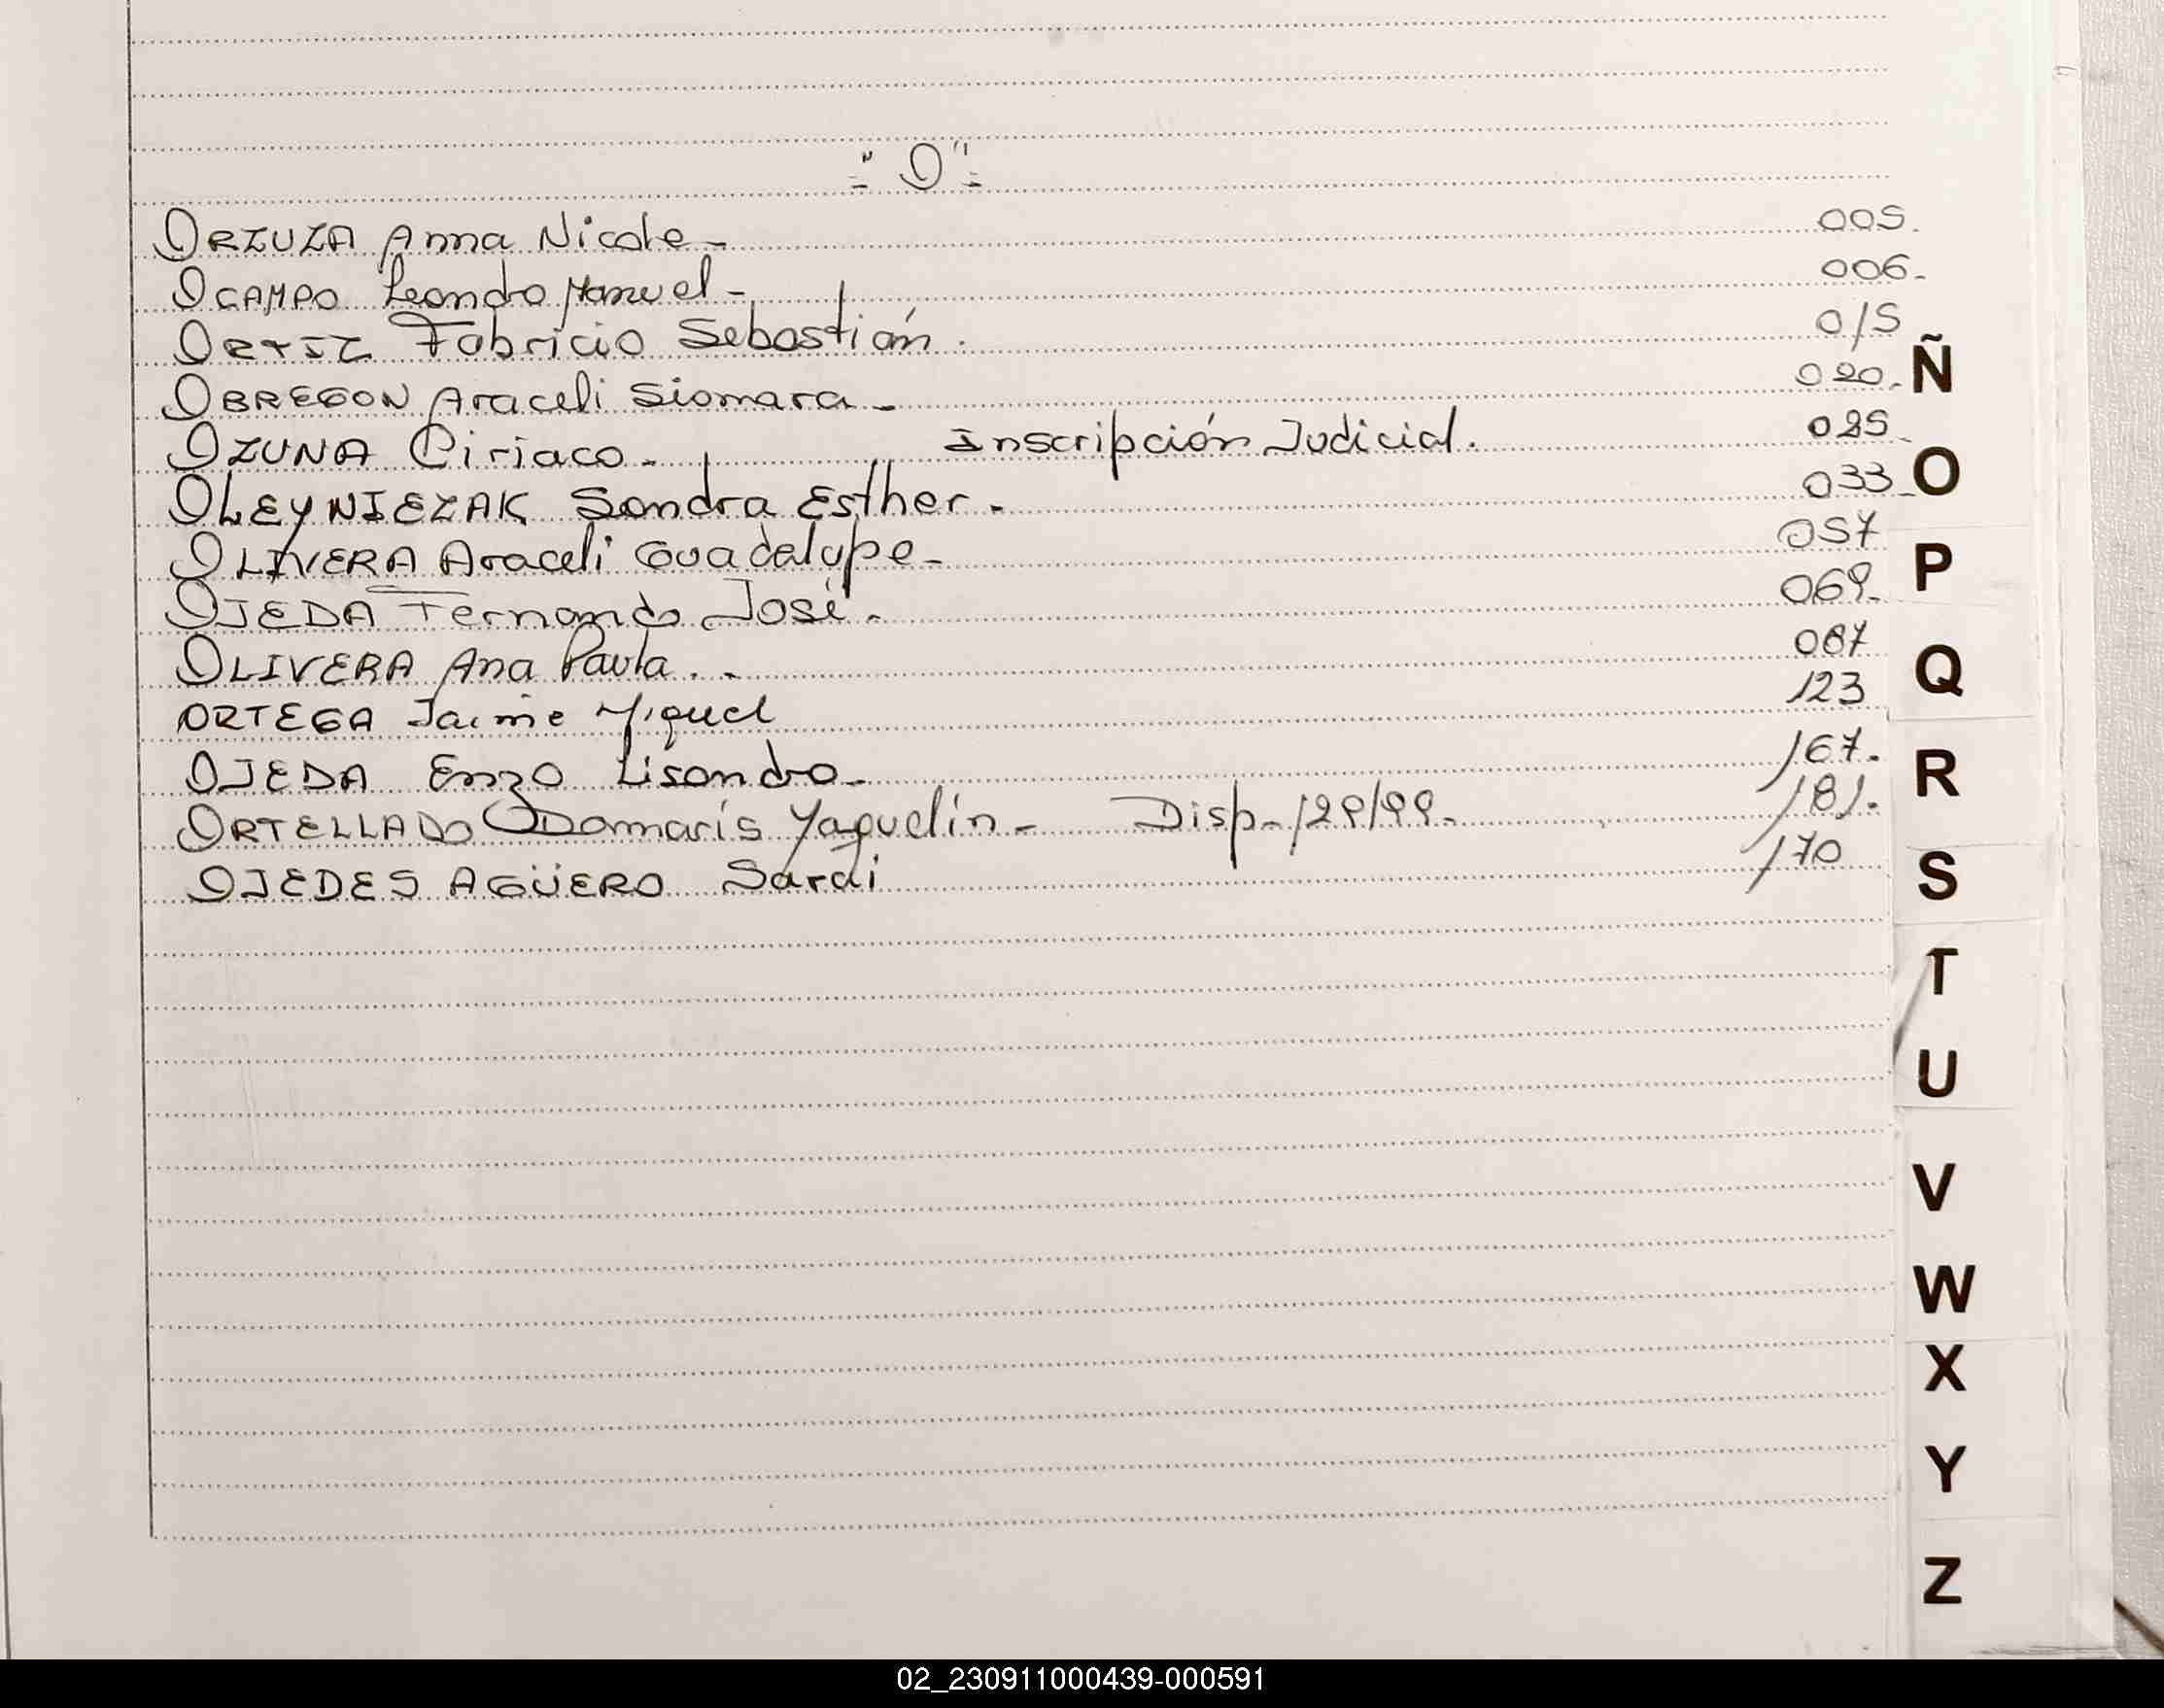 "O"
ORZUZA Anna Nicole- 005.
OCAMPO Leondo Manuel- 006-
ORTIZ Fabricio Sebastián. 015
OBREGON Araceli Siomara- 020.
OZUNA Ciriaco- Inscripción Judicial. 025
OLEYNIEZAK Sandra Esther- 033-
OLIVERA Araceli Guadalupe- 057
OJEDA Fernando José- 069-
OLIVERA Ana Paula.- 087
ORTEGA Jaime Miguel 123
OJEDA Enzo Lisandro- 167.
ORTELLADO Dammarís Yaquelín- Disp- 129/99- 181.
OJEDES AGÜERO Sarai 170
Ñ
O
P
Q
R
S
T
U
V
W
X
Y
Z
02_230911000439-000591